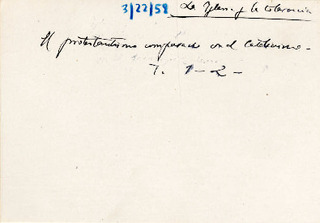 3/22/58 La Iglesia y la tolerancia
El protestantismo comparado con el catolicismo -
T. 1-2-